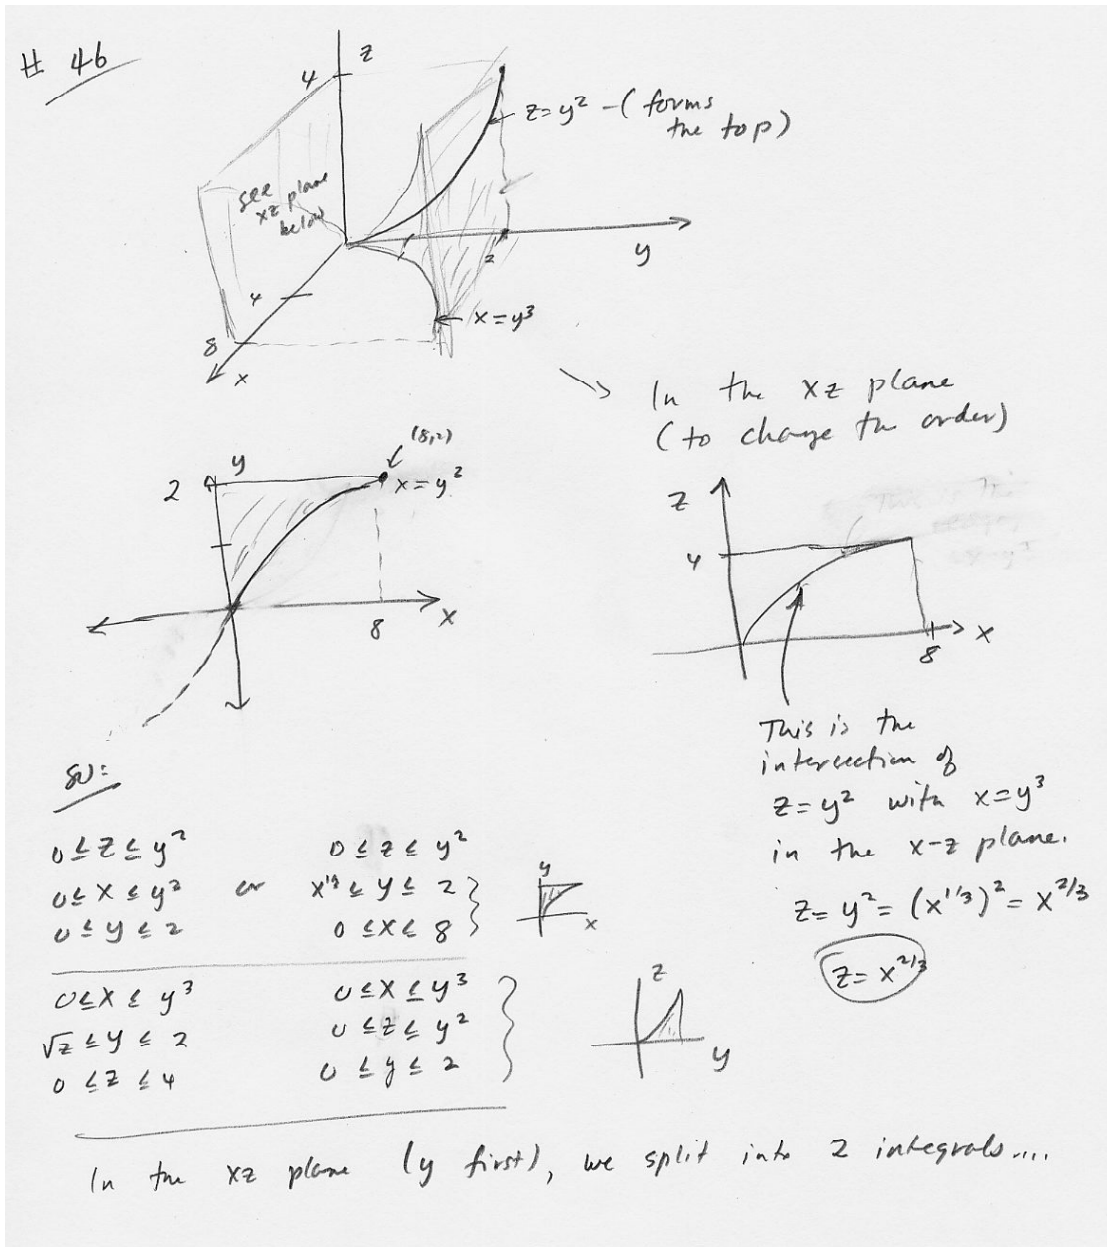 # 46
z
4
z=y² - (forms
the top)
see
xz plane
below
y
2
4
x=y³
8
x
In the xz plane
(to change the order)
(8,2)
y
2
x=y²
8
x
z
4
x
8
This is the
intersection of
z=y² with x=y³
in the x-z plane.
z= y² = (x^{1/3})² = x^{2/3}
z= x^{2/3}
so:
0≤z≤y² or 0≤z≤y²
0≤x≤y² x^{1/3}≤y≤2
0≤y≤2 0≤x≤8
y
x
0≤x≤y³ 0≤x≤y³
√z≤y≤2 0≤z≤y²
0≤z≤4 0≤y≤2
z
y
In the xz plane (y first), we split into 2 integrals....